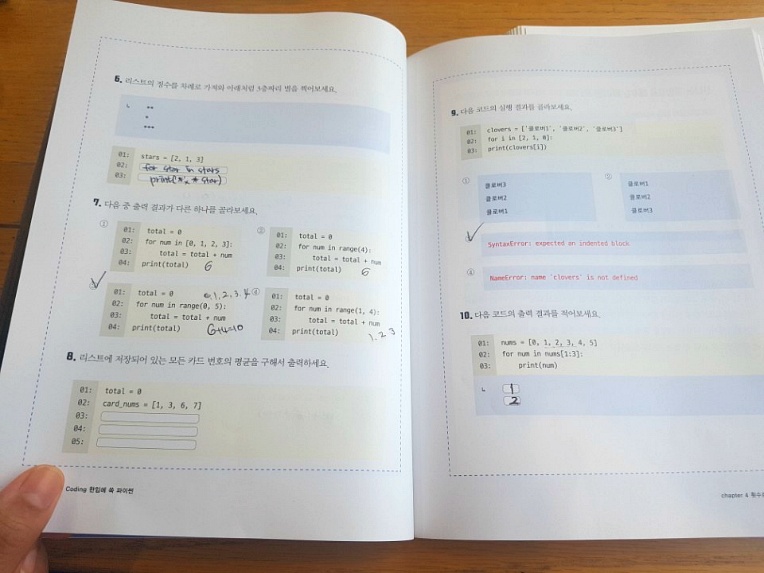 6. 리스트의 점수를 차례로 가져와 아래처럼 3층짜리 별을 찍어보세요.
↳ **
*
***
01: stars = [2, 1, 3]
02: for star in stars
03: print('*' * star)
7. 다음 중 출력 결과가 다른 하나를 골라보세요.
①
01: total = 0
02: for num in [0, 1, 2, 3]:
03: total = total + num
04: print(total) 6
②
01: total = 0
02: for num in range(4):
03: total = total + num
04: print(total) 6
01: total = 0 0, 1, 2, 3, 4
02: for num in range(0, 5):
03: total = total + num
04: print(total) 6+4=10
④
01: total = 0
02: for num in range(1, 4):
03: total = total + num
04: print(total) 1, 2, 3
8. 리스트에 저장되어 있는 모든 카드 번호의 평균을 구해서 출력하세요.
01: total = 0
02: card_nums = [1, 3, 6, 7]
03:
04:
05:
Coding 한입에 쏙 파이썬
9. 다음 코드의 실행 결과를 골라보세요.
01: clovers = ['클로버1', '클로버2', '클로버3']
02: for i in [2, 1, 0]:
03: print(clovers[i])
①
클로버3
클로버2
클로버1
②
클로버1
클로버2
클로버3
SyntaxError: expected an indented block
④ NameError: name 'clovers' is not defined
10. 다음 코드의 출력 결과를 적어보세요.
01: nums = [0, 1, 2, 3, 4, 5]
02: for num in nums[1:3]:
03: print(num)
↳ 1
2
chapter 4